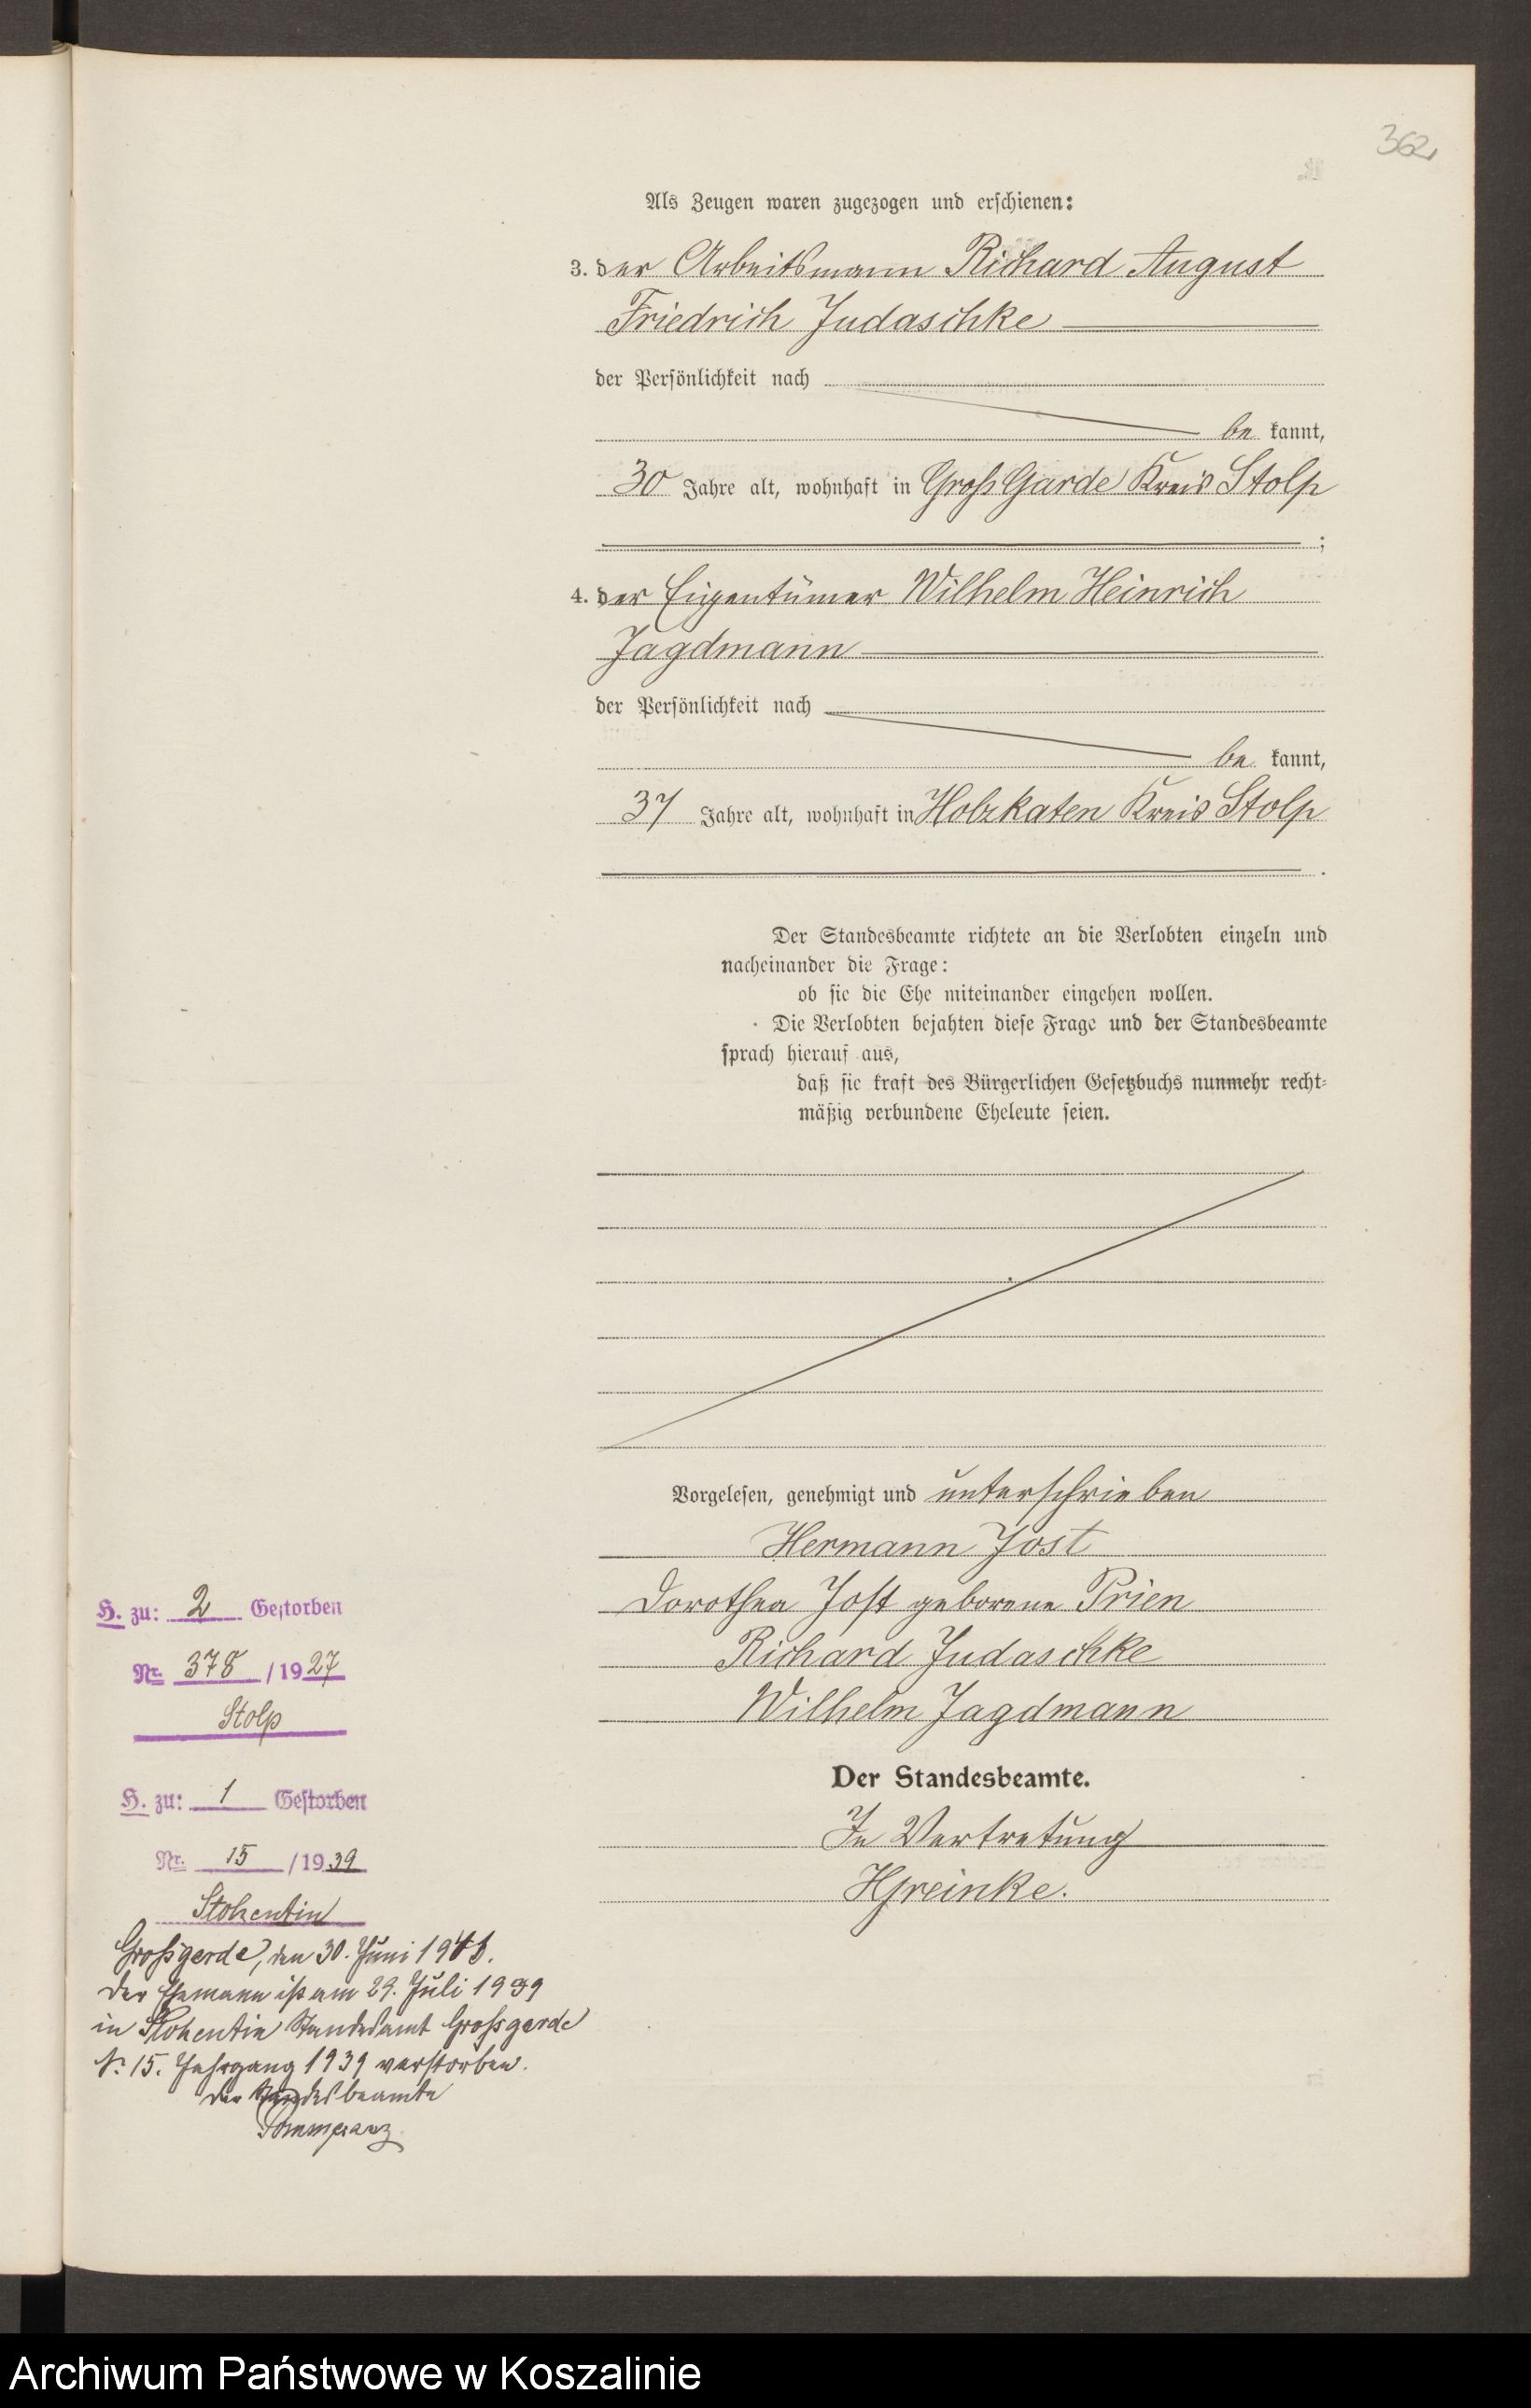 362
Als Zeugen waren zugezogen und erschienen:
3. der Arbeitsmann Richard August
Friedrich Judaschke
der Persönlichkeit nach
be kannt,
30 Jahre alt, wohnhaft in Groß Garde Kreis Stolp
;
4. der Eigentümer Wilhelm Heinrich
Jagdmann
der Persönlichkeit nach
be kannt,
37 Jahre alt, wohnhaft in Holzkaten Kreis Stolp
.
Der Standesbeamte richtete an die Verlobten einzeln und
nacheinander die Frage:
ob sie die Ehe miteinander eingehen wollen.
Die Verlobten bejahten diese Frage und der Standesbeamte
sprach hierauf aus,
daß sie kraft des Bürgerlichen Gesetzbuchs nunmehr recht-
mäßig verbundene Eheleute seien.
Vorgelesen, genehmigt und unterschrieben
Hermann Jost
Dorothea Jost geborene Prien
Richard Judaschke
Wilhelm Jagdmann
Der Standesbeamte.
In Vertretung
HGreinke.
H. zu: 2 Gestorben
Nr. 378 / 1927
Stolp
H. zu: 1 Gestorben
Nr. 15 / 1939
Stohentin
Großgarde, den 30. Juni 19
Der Ehemann ist am 29. Juli 1939
in Stohentin Standesamt Grossgarde
Nr. 15. Jahrgang 1939 verstorben.
Der Standesbeamte
Pommeranz
Archiwum Państwowe w Koszalinie